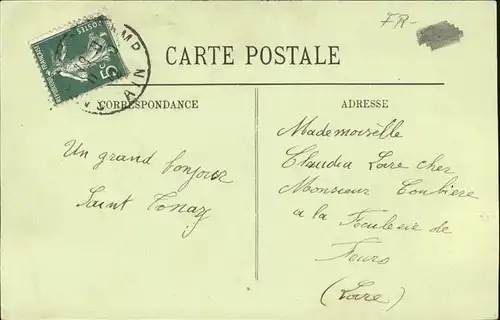 FR-
CARTE POSTALE
CORRESPONDANCE
ADRESSE
Un grand bonjour
Saint
Mademoiselle
Claudia Loire chez
Monsieur Combiere
a la Feculerie de
Feurs
(Loire)
POSTES
5c
AIN